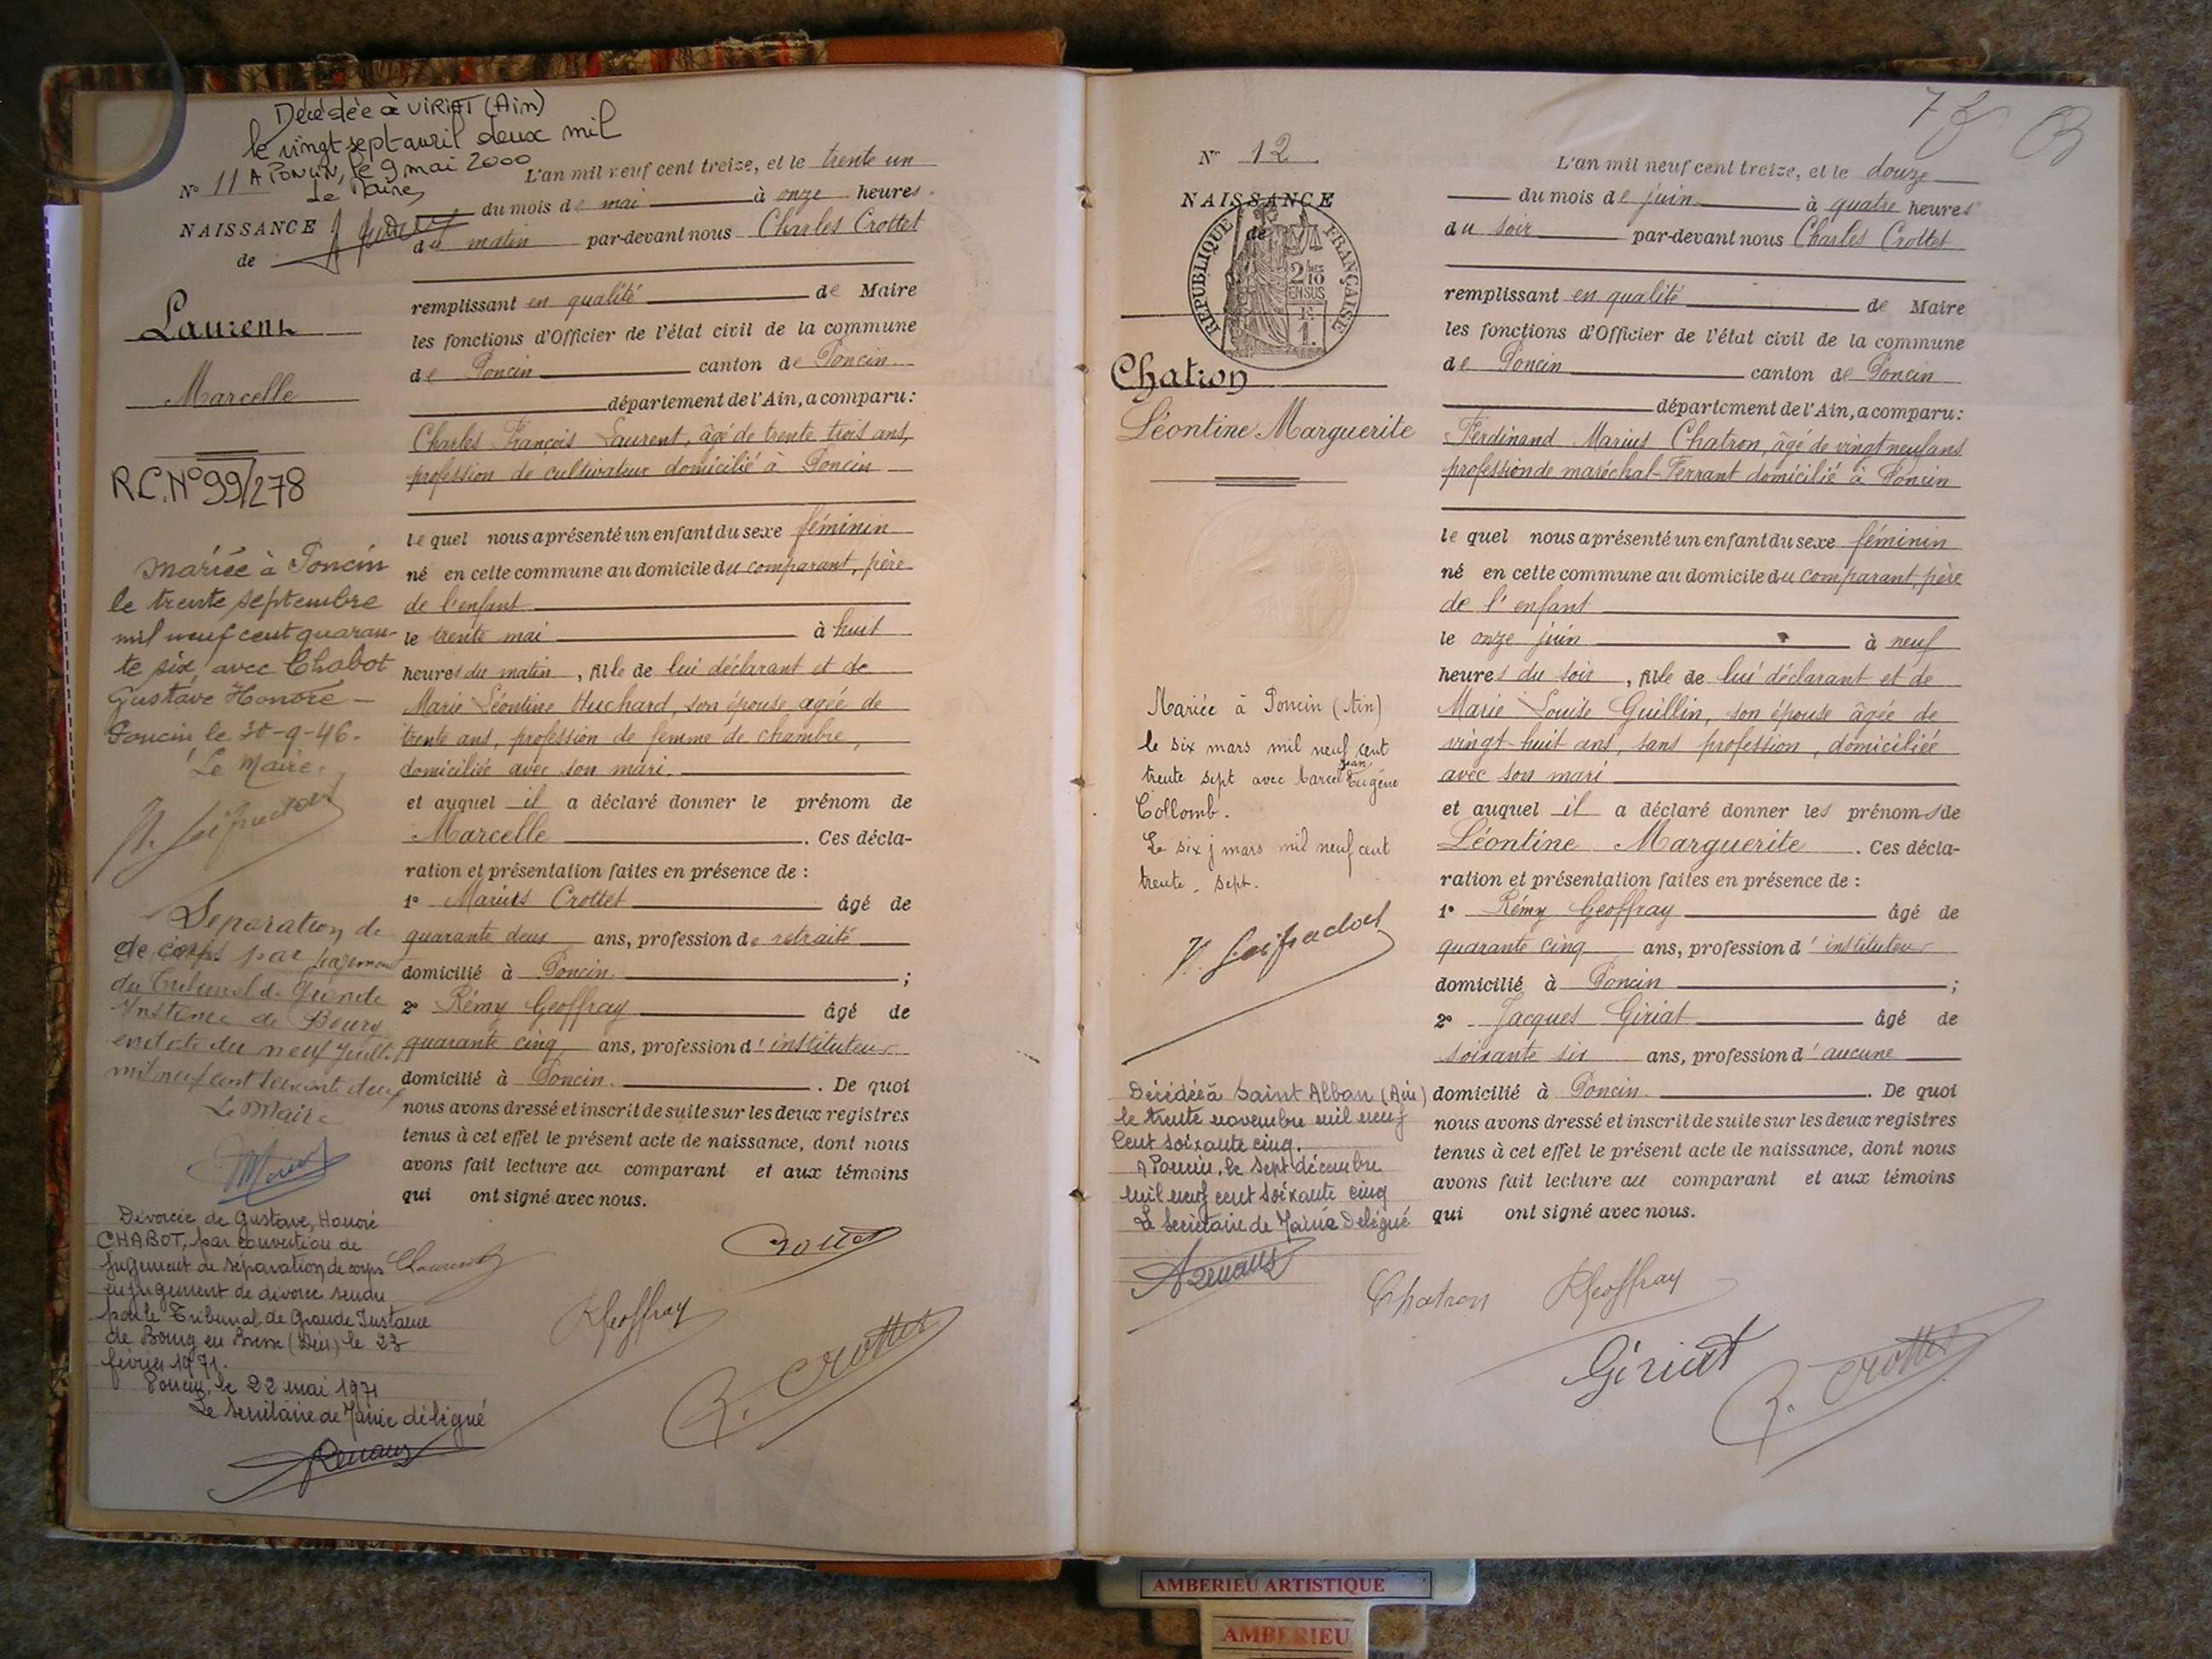 Décédée à VIRIAT (Ain)
le vingt sept avril deux mil
A PONCIN, le 9 mai 2000
Le Maire,
N° 11
NAISSANCE
de
Laurent
Marcelle
R.C. N° 99/278
Mariée à Poncin
le trente septembre
mil neuf cent quaran-
te six, avec Chabot
Gustave Honoré —
Poncin le 30-9-46.
Le Maire,
Séparation de
de corps par jugement
du Tribunal de Grande
Instance de Bourg
en date du neuf Juillet
mil neuf cent soixante deux
Le Maire
Divorcée de Gustave, Honoré
CHABOT, par conversion de
jugement de séparation de corps
en jugement de divorce rendu
par le Tribunal de Grande Instance
de Bourg en Bresse (Ain) le 23
février 1971.
Poncin, le 22 mai 1971
Le Secrétaire de Mairie délégué
Renaus
L'an mil neuf cent treize, et le trente un
du mois de mai à onze heures
du matin par-devant nous Charles Crottet
remplissant en qualité de Maire
les fonctions d'Officier de l'état civil de la commune
de Poncin canton de Poncin
département de l'Ain, a comparu :
Charles François Laurent, âgé de trente trois ans,
profession de cultivateur domicilié à Poncin
le quel nous a présenté un enfant du sexe féminin
né en cette commune au domicile du comparant, père
de l'enfant
le trente mai à huit
heures du matin, fille de lui déclarant et de
Marie Léontine Huchard, son épouse agée de
trente ans, profession de femme de chambre,
domiciliée avec son mari.
et auquel il a déclaré donner le prénom de
Marcelle. Ces décla-
ration et présentation faites en présence de :
1° Marius Crottet âgé de
quarante deux ans, profession de retraité
domicilié à Poncin ;
2° Rémy Geoffray âgé de
quarante cinq ans, profession d'instituteur
domicilié à Poncin. De quoi
nous avons dressé et inscrit de suite sur les deux registres
tenus à cet effet le présent acte de naissance, dont nous
avons fait lecture au comparant et aux témoins
qui ont signé avec nous.
CLaurent
Crottet
RGeoffray
Crottet
N° 12
NAISSANCE
de
REPUBLIQUE FRANÇAISE
2/10 EN SUS
1
Chatron
Léontine Marguerite
Mariée à Poncin (Ain)
le six mars mil neuf cent
trente sept avec Marcel Jean Eugène
Collomb.
Le six mars mil neuf cent
trente-sept.
Décédée à Saint Alban (Ain)
le trente novembre mil neuf
cent soixante cinq.
A Poncin, le sept décembre
mil neuf cent soixante cinq
Le Secrétaire de Mairie Délégué
Renaus
L'an mil neuf cent treize, et le douze
du mois de juin à quatre heures
du soir par-devant nous Charles Crottet
remplissant en qualité de Maire
les fonctions d'Officier de l'état civil de la commune
de Poncin canton de Poncin
département de l'Ain, a comparu :
Ferdinand Marius Chatron, âgé de vingt neuf ans
profession de maréchal-Ferrant domicilié à Poncin
le quel nous a présenté un enfant du sexe féminin
né en cette commune au domicile du comparant, père
de l'enfant
le onze juin à neuf
heures du soir, fille de lui déclarant et de
Marie Louise Guillin, son épouse âgée de
vingt-huit ans, sans profession, domiciliée
avec son mari
et auquel il a déclaré donner les prénoms de
Léontine Marguerite. Ces décla-
ration et présentation faites en présence de :
1° Rémy Geoffray âgé de
quarante cinq ans, profession d'instituteur
domicilié à Poncin ;
2° Jacques Giriat âgé de
soixante six ans, profession d'aucune
domicilié à Poncin. De quoi
nous avons dressé et inscrit de suite sur les deux registres
tenus à cet effet le présent acte de naissance, dont nous
avons fait lecture au comparant et aux témoins
qui ont signé avec nous.
Chatron
RGeoffray
Giriat
Crottet
AMBERIEU ARTISTIQUE
AMBERIEU